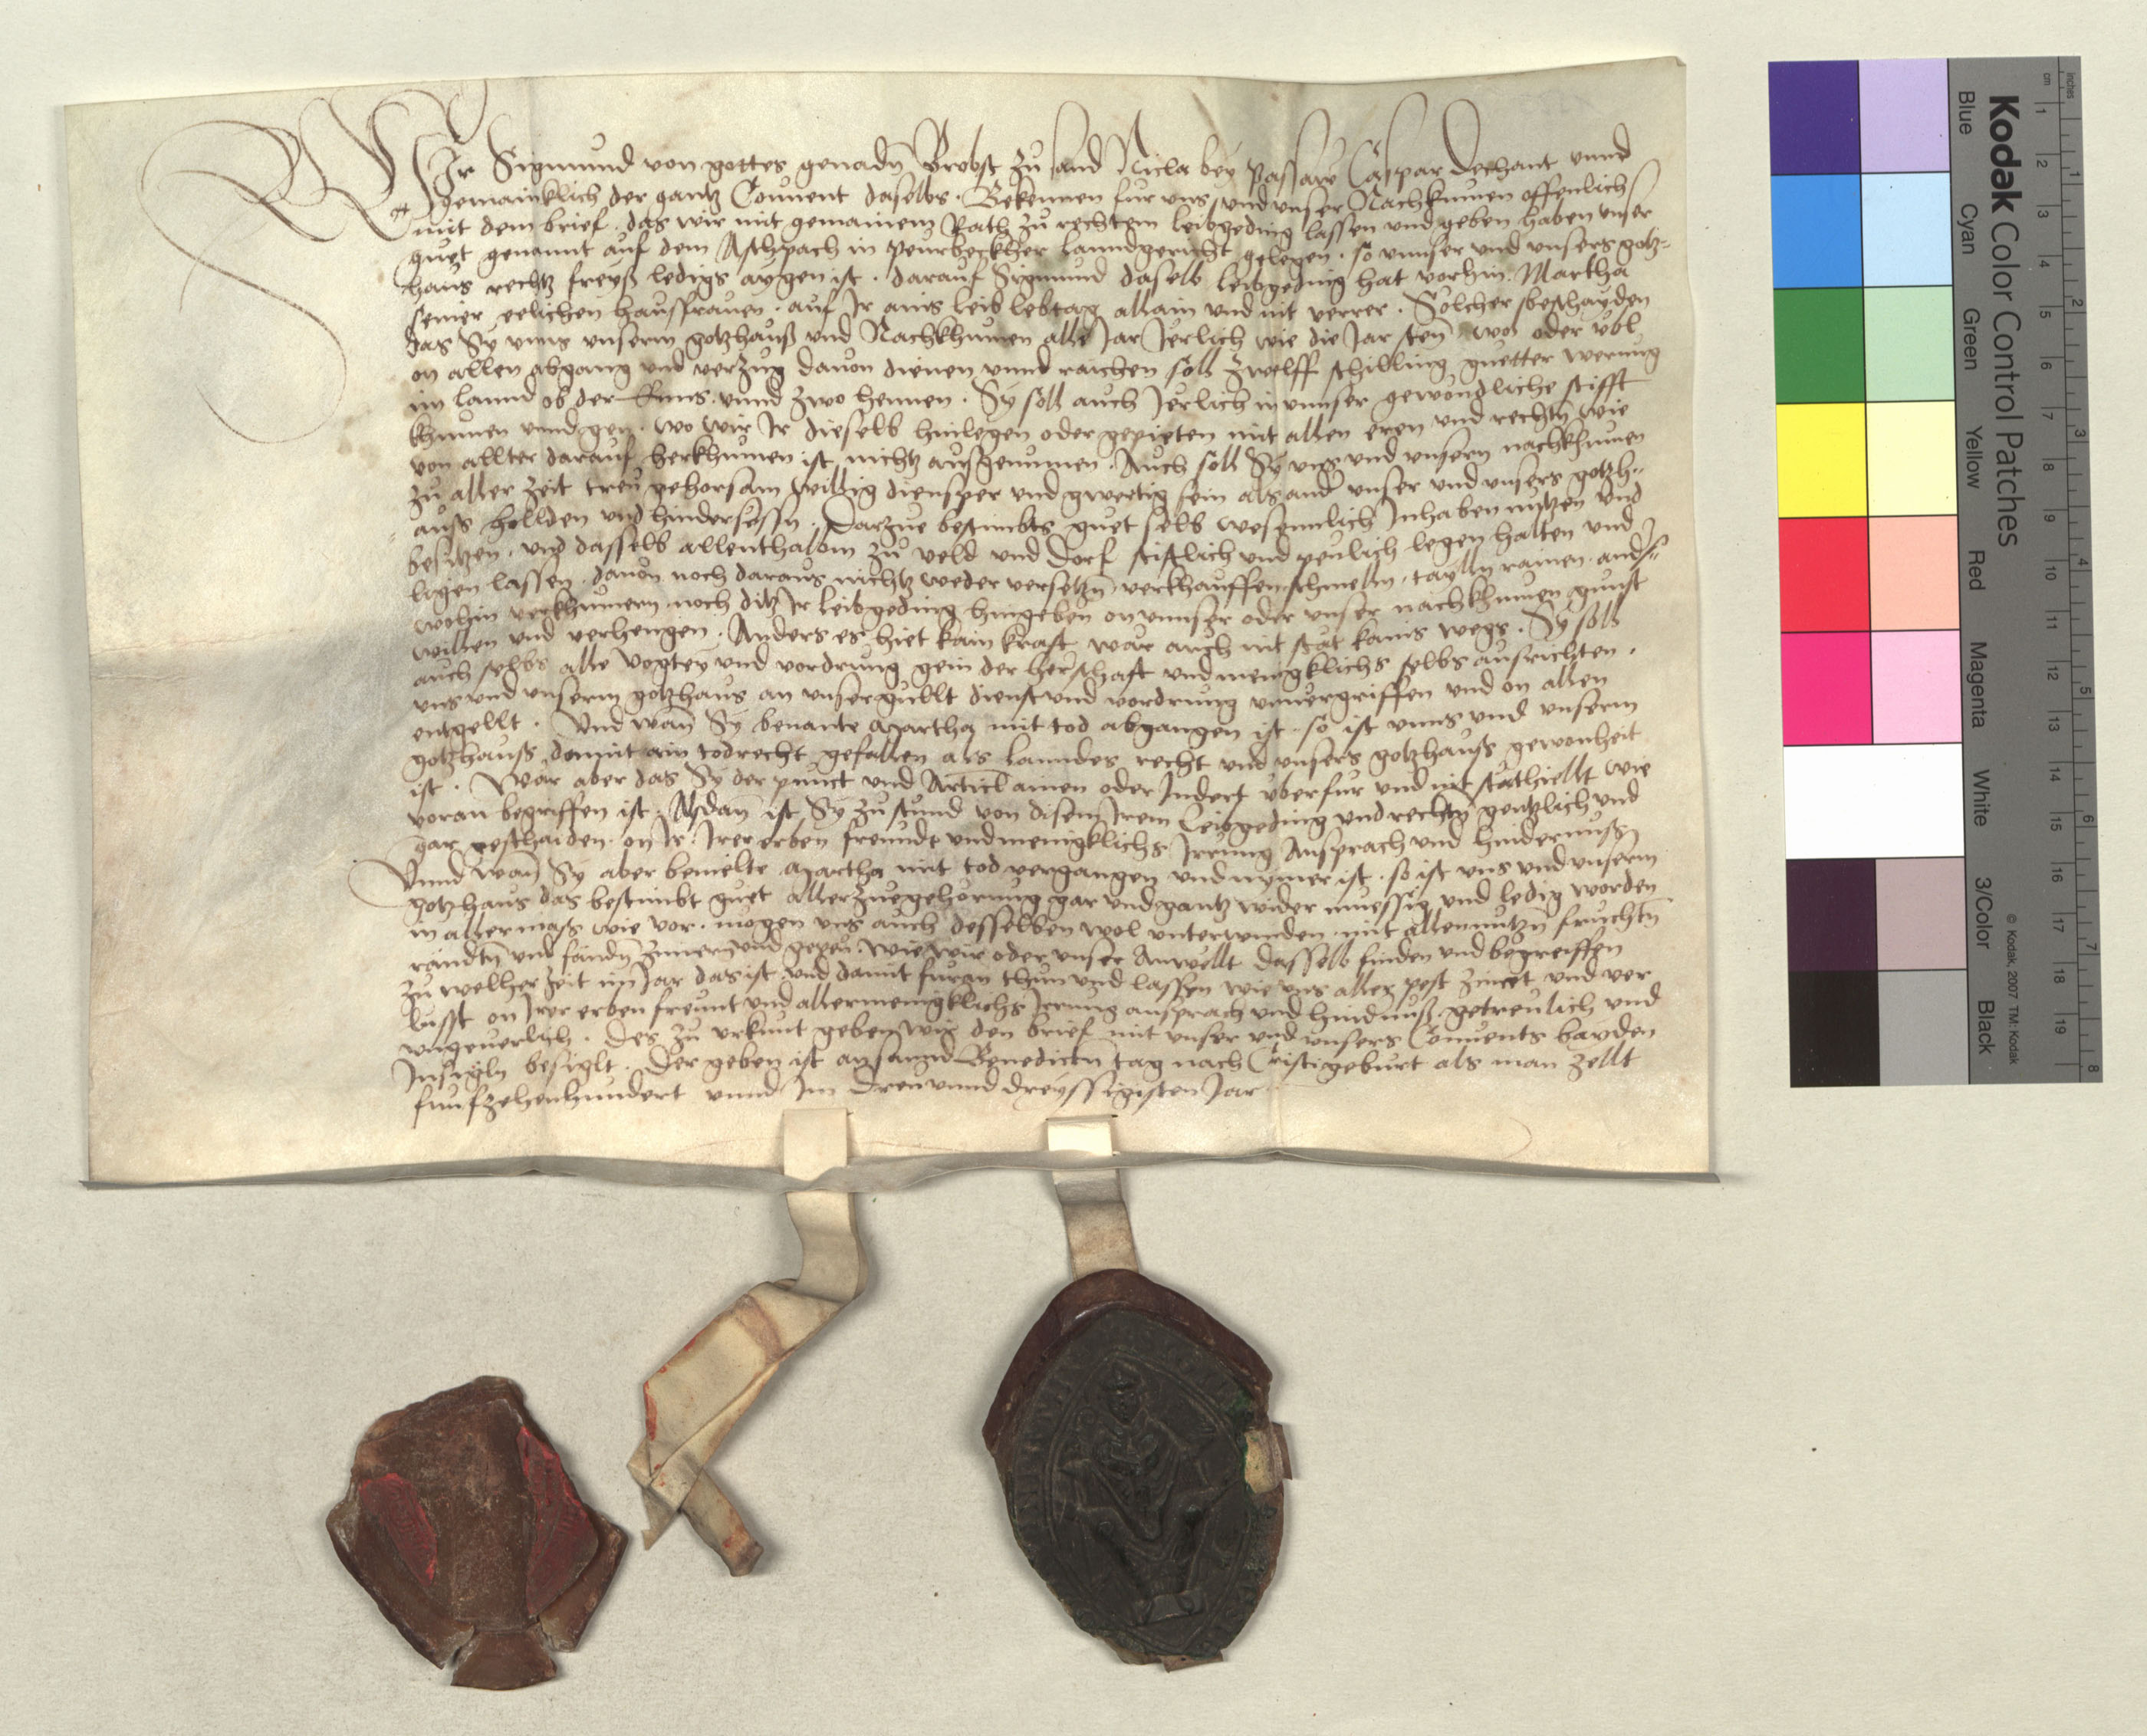 WIr Sigmund von gottes genadn Brobst zu sand Nicla bey Passaw Caspar Dechant unnd
gemaincklich der gantz Convent daselbs. Bekennen fur uns und unser Nachkumen offenlich
mit dem brief. das wir mit gemainem Rath zu rechtem leibgeding lassen und geben haben unser
guet genannt auf dem Aschpach in peurbeckher lanndgericht gelegen. so unnser und unsers gotz=
haus rechtz freyß ledigs aygen ist. darauf Sigmund daselb leibgeding hat vorhin. Martha
seiner eelichen hausfrauen. auf Ir ains leib lebtag allain und nit verrer. Solcher beschayden
das Sy unns unserm gotzhauß und Nachkhumen alle Jar Jerlich wie die Jar sten wol oder ubl
on allen abgang und verzug davon dienen unnd raichen soll zwelff schilling guetter werung
im lannd ob der Enns. unnd zwo hennen. Sy soll auch Jerlich in unnser gewondliche stifft
khumen unnd gen. wo wir Ir dieselb hinlegen oder gepieten mit allen eren und rechtn wie
von allter darauf herkhumen ist nichtz ausgenumen. Auch soll Sy uns und unsern nachkhumen
zu aller zeit treu gehorsam willig diensper und gwertig sein als ander unser und unsers gotzh=
=auß hollden und hindersessn. Darzue bestimbts guet selb wesennlich Inhaben nutzen und
besitzen. und dasselb allenthalbm zu veld und dorf stiftlich und peulich legen halten und
ligen lassen. davon noch daraus nichtz weder versetzn verkhauffen schmelln. taylln rainen. anders=
wohin verkhumern. noch ditz Ir leibgeding hingeben on unnser oder unser nachkhumen gunst
willen und verhengen. Anders es hiet kain kraft wär auch nit stät kains wegs. Sy soll
auch selbs alle vogtey und vordrung gein der herschaft und menigklichs selbs ausrichten.
uns und unserm gotzhaus an unser gullt dienst und vordrung unvergriffen und on allen
entgellt. Und wan Sy benante Martha mit tod abgangen ist. so ist unns und unserm
gotzhauß damit ain todrecht gefallen als lanndes recht und unsers gotzhauß gewonheit
ist. Wär aber das Sy der punct und Articl ainen oder Indert uberfur und nit stäthiellt wie
voran begriffen ist. Alsdan ist Sy zustund von disem Irem Leibgeding und rechtn gentzlich und
gar geschaiden. on Ir. Irer erben freundt und menigklichs Irrung Ansprach und hindernuß
Unnd wan Sy aber bemelte Martha mit tod vergangen und nymer ist. so ist uns und unserm
gotzhaus das bestimbt guet aller zuegehorung gar und gantz wider muessig und ledig worden
in allermaß wie vor. mogen uns auch desselben wol unterwinden. mit allen nutzn fruchtn
varndtn und ligendn zimern und gepeu. wie wir oder unser Anwellt dasselb finden und begreiffen
zu welher zeit im Jar das ist. und damit furan thun und lassen wie uns aller pest zimet und ver
lusst on Irer erben freunt und allermenigklichs Irrung ansprach und hindnuß. getreulich und
ungeverlich. Des zu urkunt geben wir den brief mit unser und unsers Convents bayden
Insigln besiglt. Der geben ist an sannd Benedictn tag nach Cristi geburt als man zellt
funfzehenhundert unnd Im dreu unnd dreyssigisten Jar
Kodak Color Control Patches
Blue Cyan Green Yellow Red Magenta White 3/Color Black
© Kodak, 2007 TM: Kodak
cm 1 2 3 4 5 6 7 8 9 10 11 12 13 14 15 16 17 18 19
Inches 1 2 3 4 5 6 7 8